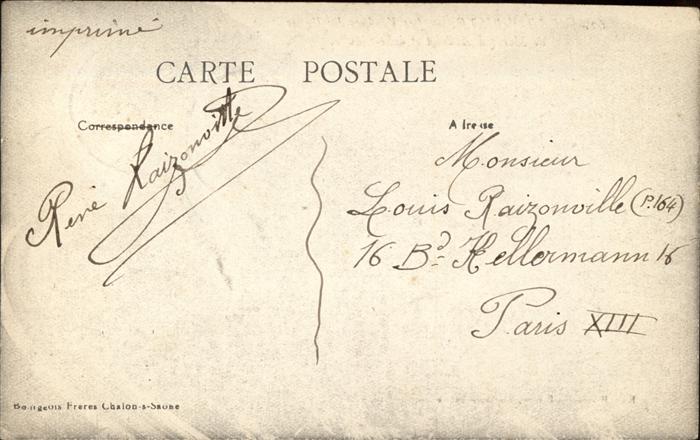 imprimé
CARTE POSTALE
Correspondance
Adresse
René Raizonville
Monsieur
Louis Raizonville (P.164)
16 Bd Kellermann 16
Paris XIII
Bourgeois Freres Chalon-s-Saone